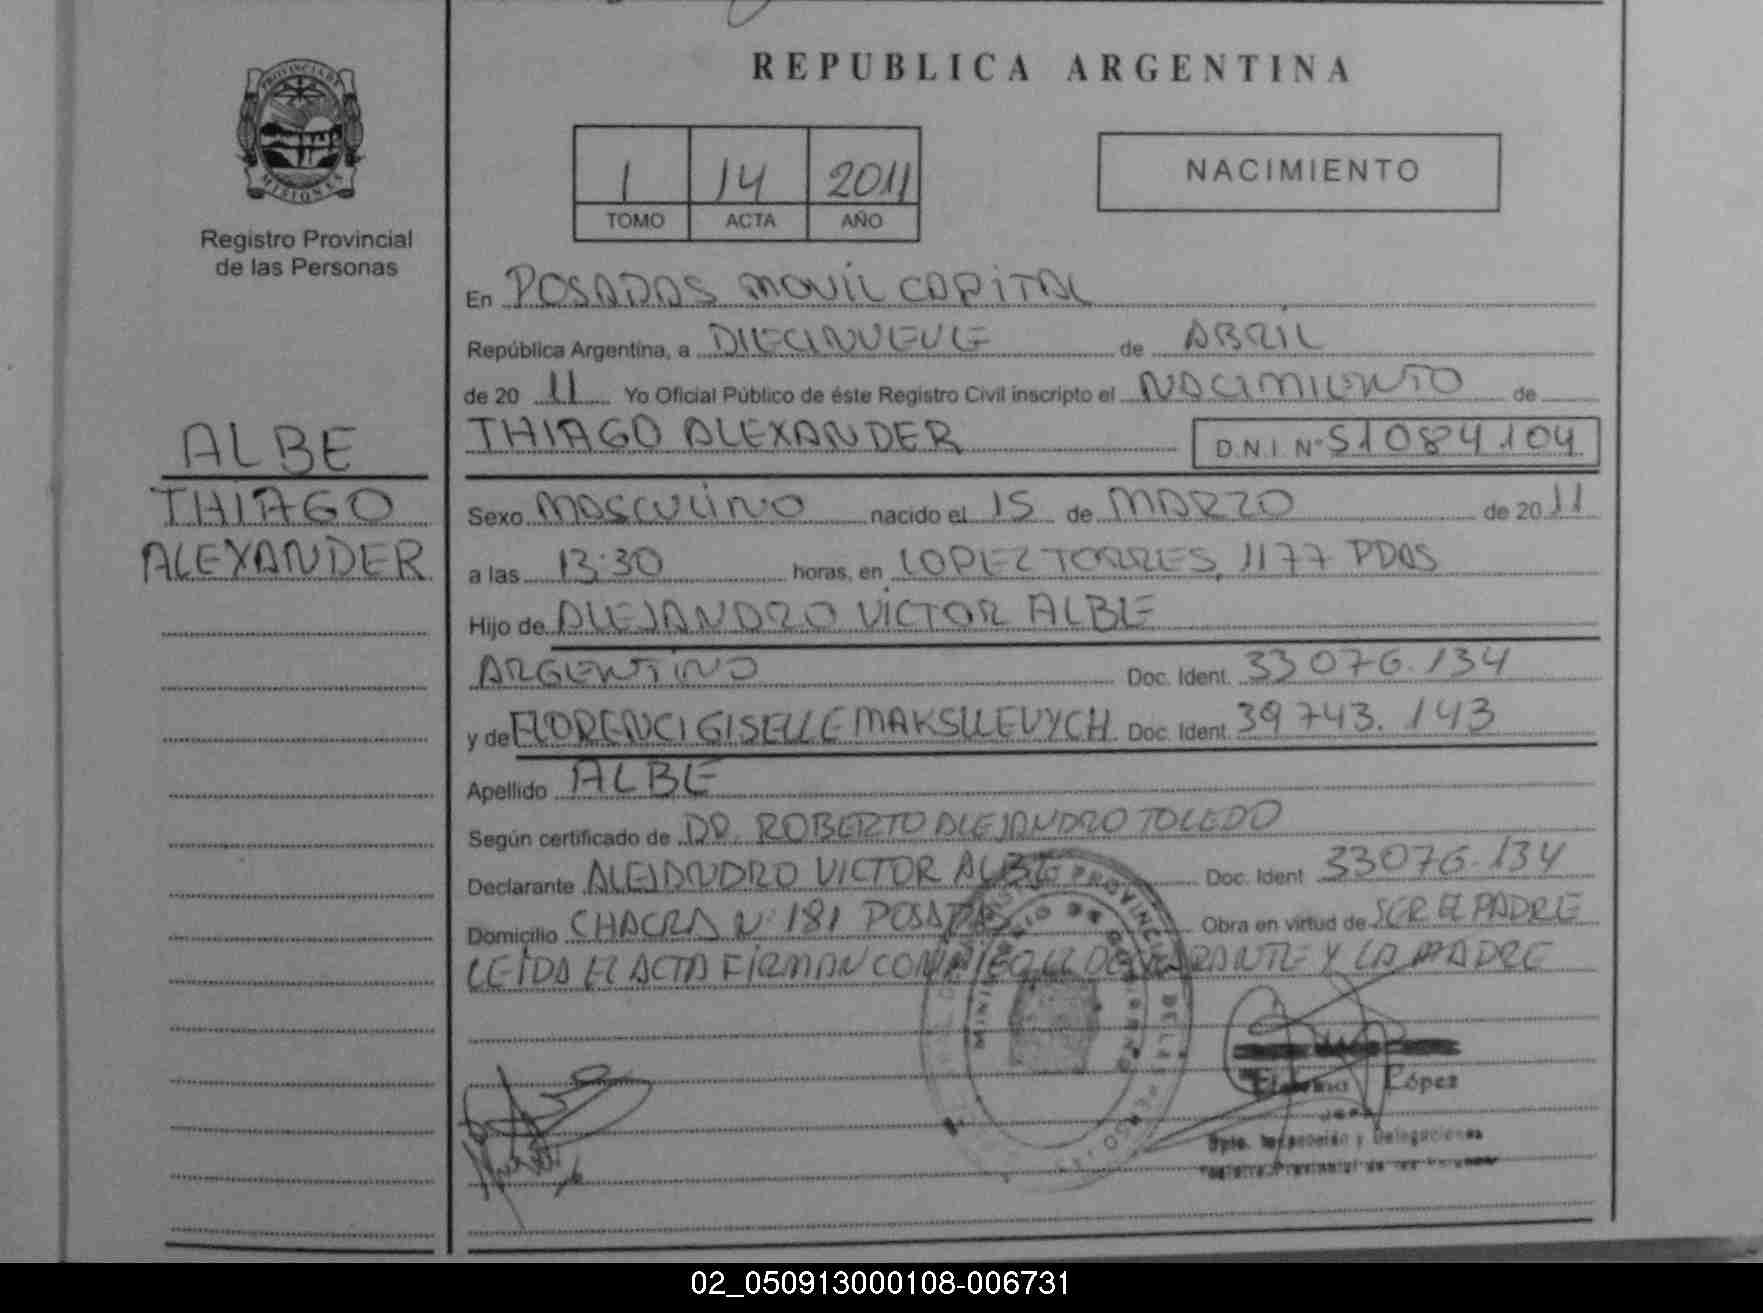 REPUBLICA ARGENTINA
PROVINCIA DE
MISIONES
Registro Provincial
de las Personas
1 14 2011
TOMO ACTA AÑO
NACIMIENTO
En POSADAS MOVIL CAPITAL
República Argentina, a DIECINUEVE de ABRIL
de 20 11 Yo Oficial Público de éste Registro Civil inscripto el NACIMIENTO de
THIAGO ALEXANDER D.N.I. Nº 51084104
ALBE
THIAGO
ALEXANDER
Sexo MASCULINO nacido el 15 de MARZO de 20 11
a las 13:30 horas, en LOPEZ TORRES, 1177 PDAS
Hijo de ALEJANDRO VICTOR ALBE
ARGENTINO Doc. Ident. 33076.134
y de FLORENCI GISELLE MAKSLLEVYCH Doc. Ident. 39743.143
Apellido ALBE
Según certificado de DR. ROBERTO ALEJANDRO TOLEDO
Declarante ALEJANDRO VICTOR ALBE Doc. Ident 33076.134
Domicilio CHACRA Nº 181 POSADAS Obra en virtud de SER EL PADRE
LEIDA EL ACTA FIRMAN CONMIGO EL DECLARANTE Y LA MADRE
López
Jefe
Dpto. Inspección y Delegaciones
Registro Provincial de las Personas
02_050913000108-006731